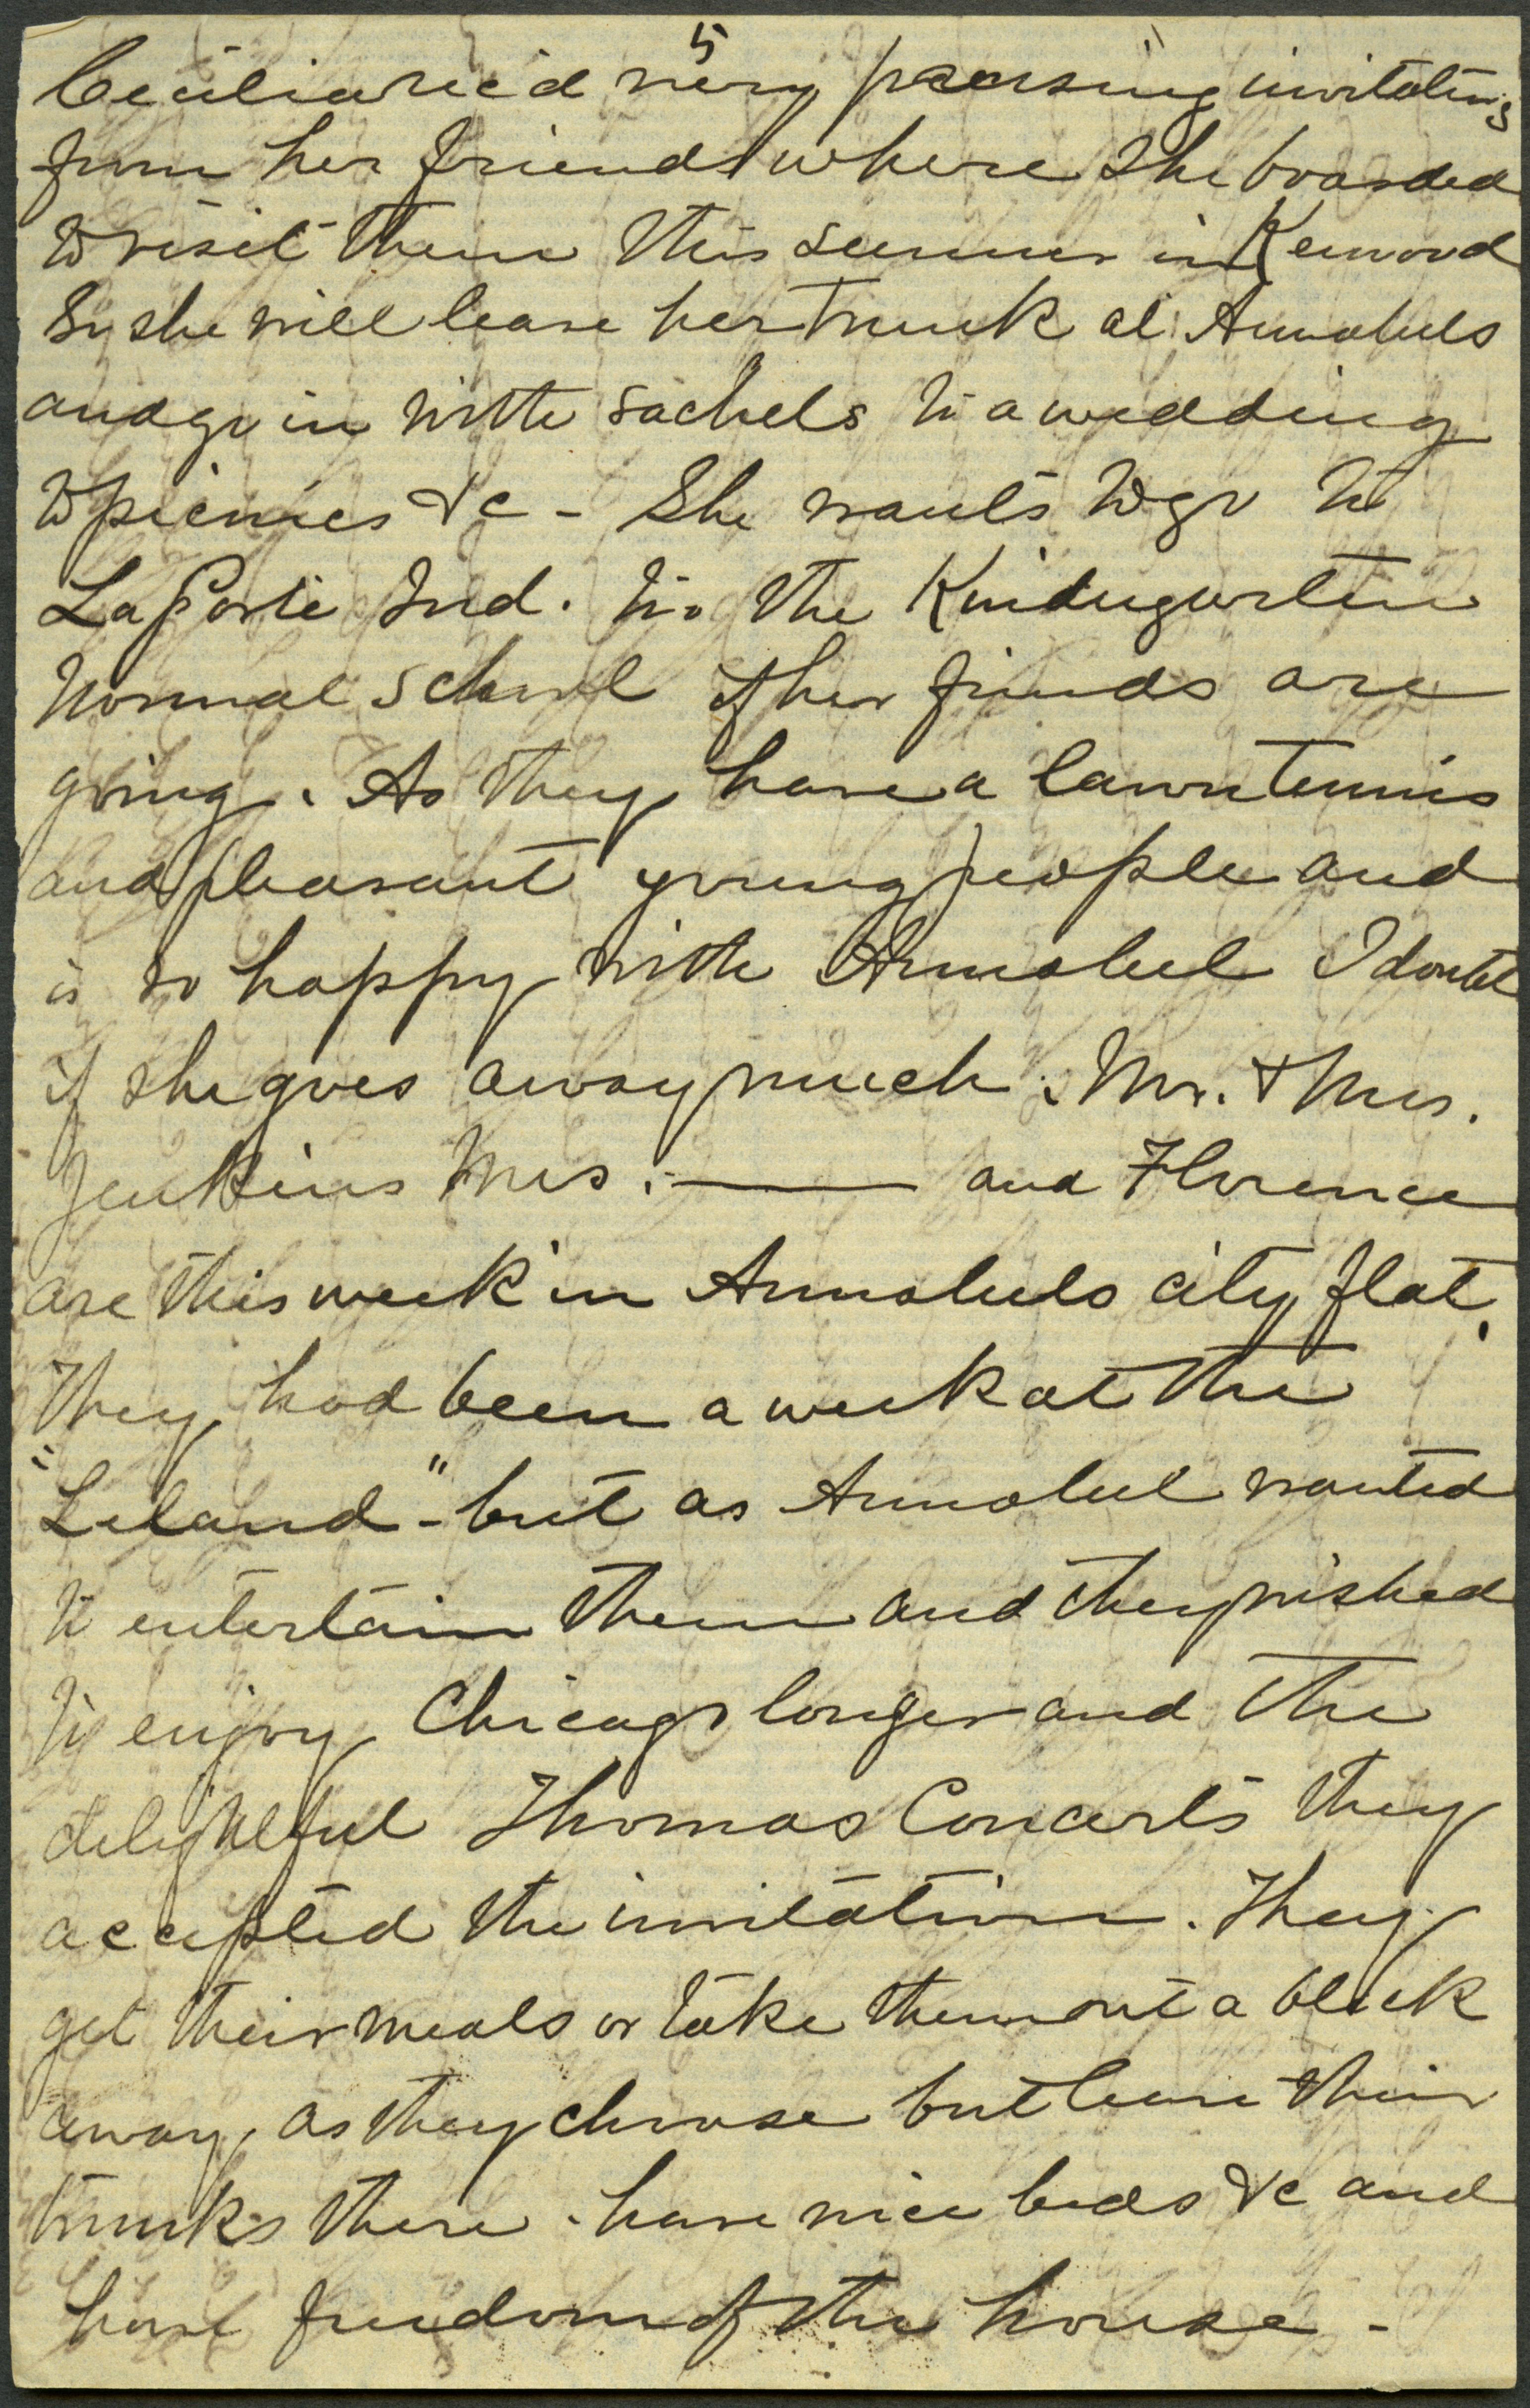 5
Cecilia rec'd very pressing invitations
from her friends where she boarded
to visit them this summer in Kenwood
So she will leave her trunk at Annabels
and go in with sachels to a wedding
to picnics &c - She wants to go to
LaPorte Ind. to the Kindergarten
Normal School if her friends are
going. As they have a lawn tennis
and pleasant young people and
is so happy with Annabel I doubt
if she goes away much. Mr. & Mrs.
Jenkins Mrs. —— and Florence
are this week in Annabels city flat.
They had been a week at the
"Leland" - but as Annabel wanted
to entertain them and they wished
to enjoy Chicago longer and the
delightful Thomas Concerts they
accepted the invitation. They
get their meals or take them out a block
away, as they choose but leave their
trunks there. have nice beds &c and
have freedom of the house -